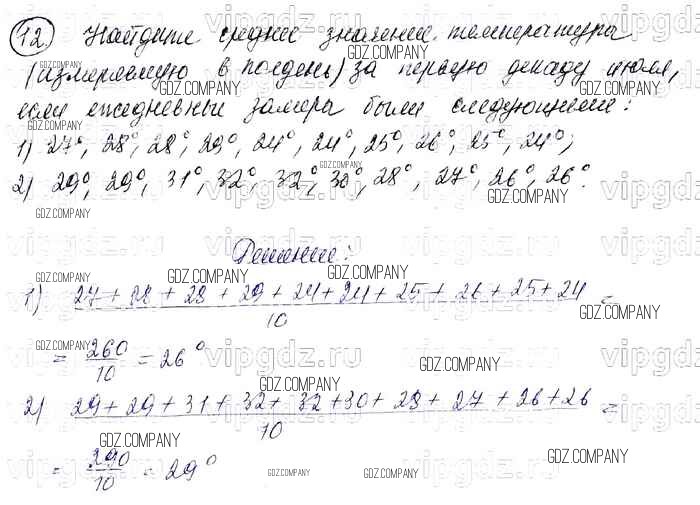 12. Найдите среднее значение температуры
(измеряемую в полдень) за первую декаду июля,
если ежедневные замера были следующими:
1) 27°, 28°, 28°, 29°, 24°, 24°, 25°, 26°, 25°, 24°;
2) 29°, 29°, 31°, 32°, 32°, 30°, 28°, 27°, 26°, 26°.
Решение:
1) 27 + 28 + 28 + 29 + 24 + 24 + 25 + 26 + 25 + 24 =
10
= 260/10 = 26°
2) 29 + 29 + 31 + 32 + 32 + 30 + 28 + 27 + 26 + 26 =
10
= 290/10 = 29°
vipgdz.ru
GDZ.COMPANY